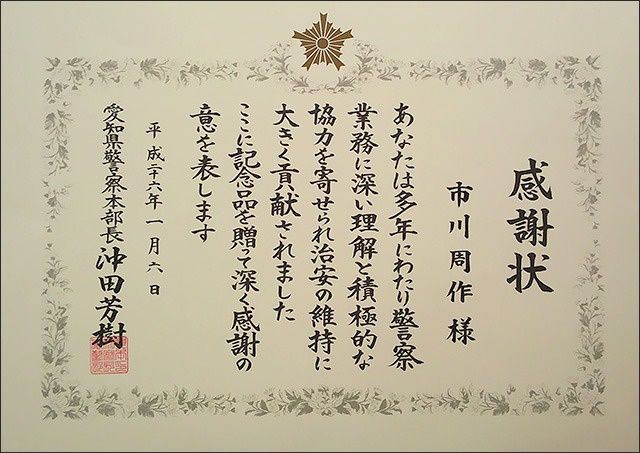 感謝状
市川周作様
あなたは多年にわたり警察
業務に深い理解と積極的な
協力を寄せられ治安の維持に
大きく貢献されました
ここに記念品を贈って深く感謝の
意を表します
平成二十六年一月六日
愛知県警察本部長 沖田芳樹